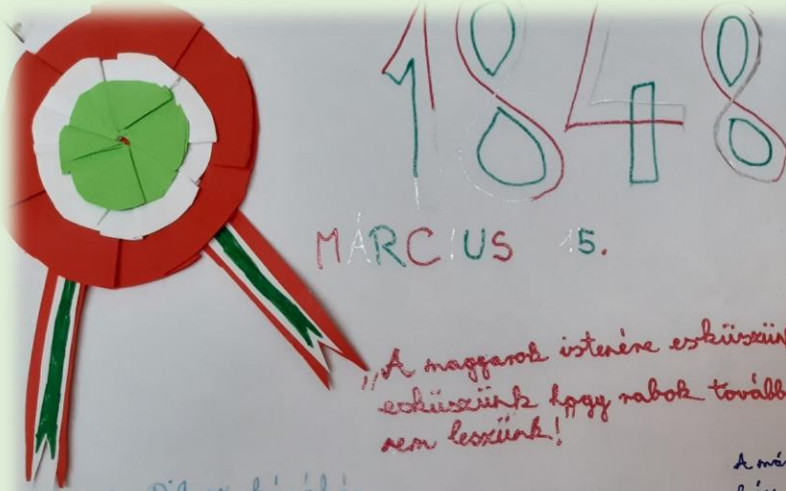 1848
MÁRCIUS 15.
„A magyarok istenére esküszünk
esküszünk hogy rabok tovább
nem leszünk!"
A má